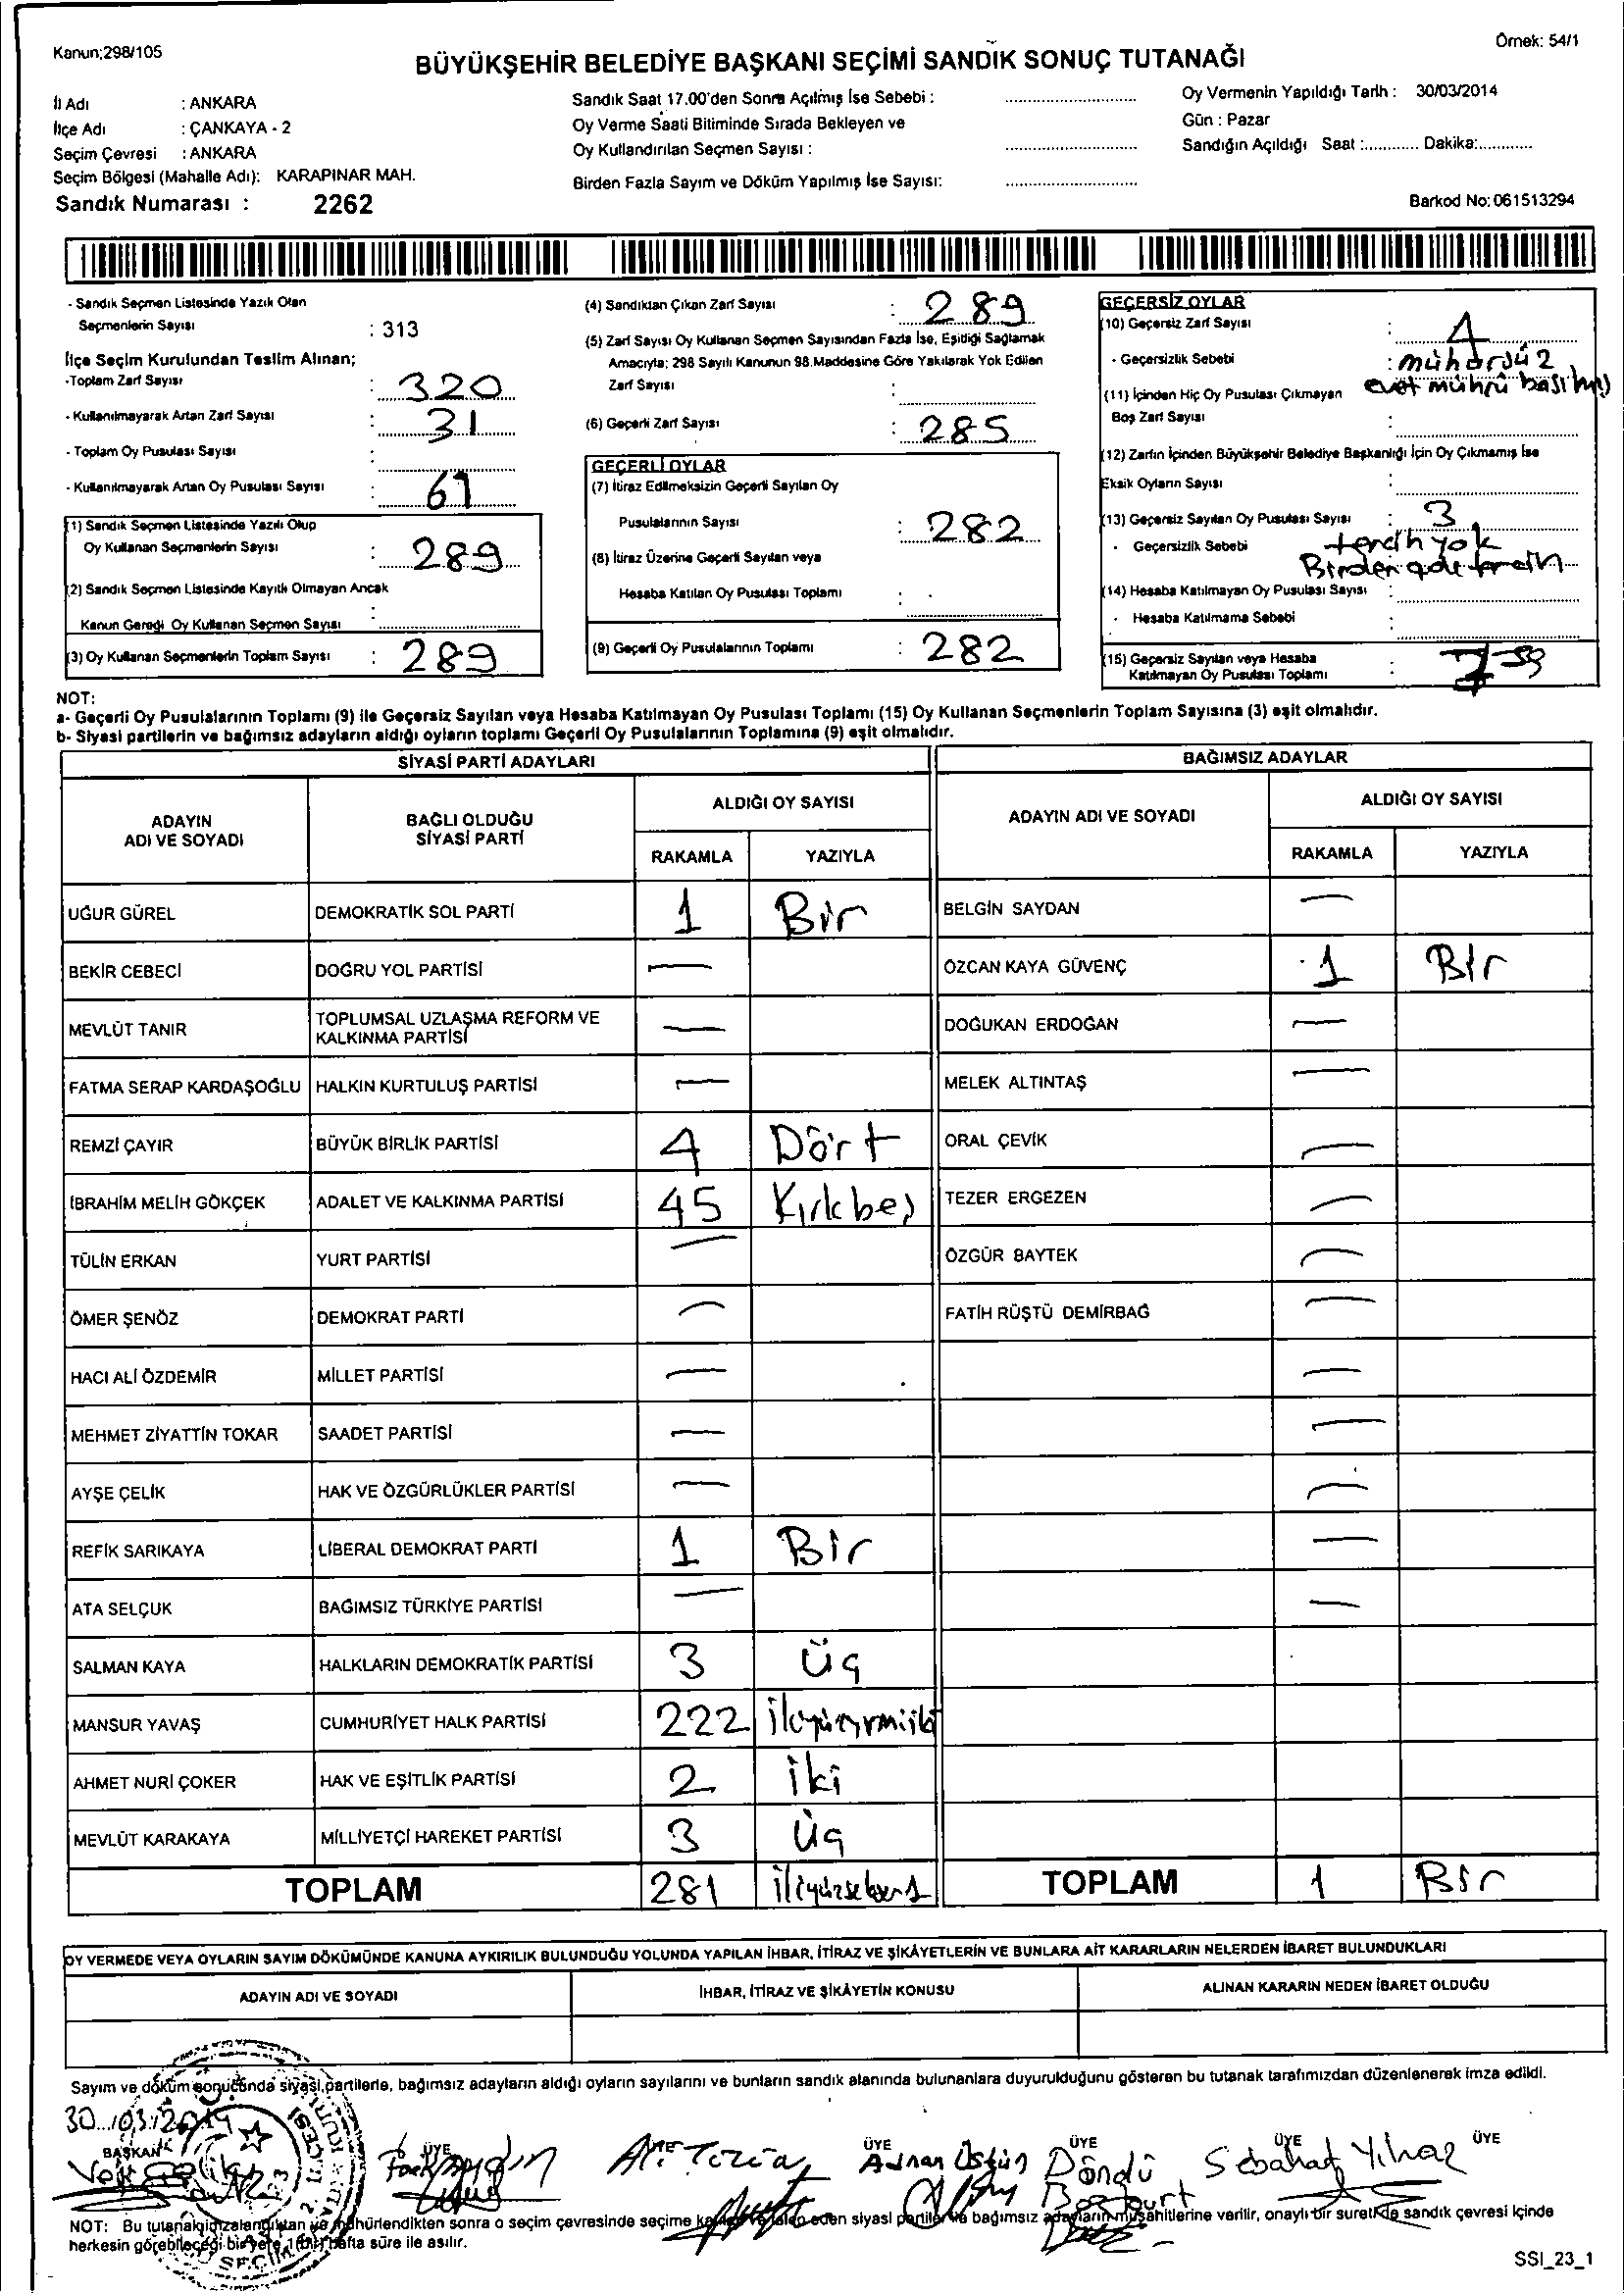 Kanun;298/105
Örnek: 54/1
BÜYÜKŞEHİR BELEDİYE BAŞKANI SEÇİMİ SANDIK SONUÇ TUTANAĞI
İl Adı : ANKARA
İlçe Adı : ÇANKAYA - 2
Seçim Çevresi : ANKARA
Seçim Bölgesi (Mahalle Adı): KARAPINAR MAH.
Sandık Numarası : 2262
Sandık Saat 17.00'den Sonra Açılmış İse Sebebi :
Oy Verme Saati Bitiminde Sırada Bekleyen ve
Oy Kullandırılan Seçmen Sayısı :
Birden Fazla Sayım ve Döküm Yapılmış İse Sayısı:
Oy Vermenin Yapıldığı Tarih : 30/03/2014
Gün : Pazar
Sandığın Açıldığı Saat :............ Dakika:............
Barkod No:061513294
- Sandık Seçmen Listesinde Yazılı Olan
Seçmenlerin Sayısı : 313
İlçe Seçim Kurulundan Teslim Alınan;
-Toplam Zarf Sayısı : 320
- Kullanılmayarak Artan Zarf Sayısı : 31
- Toplam Oy Pusulası Sayısı :
- Kullanılmayarak Artan Oy Pusulası Sayısı : 61
(1) Sandık Seçmen Listesinde Yazılı Olup
Oy Kullanan Seçmenlerin Sayısı : 289
(2) Sandık Seçmen Listesinde Kayıtlı Olmayan Ancak
Kanun Gereği Oy Kullanan Seçmen Sayısı :
(3) Oy Kullanan Seçmenlerin Toplam Sayısı : 289
(4) Sandıktan Çıkan Zarf Sayısı : 289
(5) Zarf Sayısı Oy Kullanan Seçmen Sayısından Fazla İse, Eşitliği Sağlamak
Amacıyla; 298 Sayılı Kanunun 98.Maddesine Göre Yakılarak Yok Edilen
Zarf Sayısı :
(6) Geçerli Zarf Sayısı : 285
GEÇERLİ OYLAR
(7) İtiraz Edilmeksizin Geçerli Sayılan Oy
Pusulalarının Sayısı : 282
(8) İtiraz Üzerine Geçerli Sayılan veya
Hesaba Katılan Oy Pusulası Toplamı :
(9) Geçerli Oy Pusulalarının Toplamı : 282
GEÇERSİZ OYLAR
(10) Geçersiz Zarf Sayısı : 4
- Geçersizlik Sebebi : mühürsüz
evet mührü basılmış
(11) İçinden Hiç Oy Pusulası Çıkmayan
Boş Zarf Sayısı :
(12) Zarfın İçinden Büyükşehir Belediye Başkanlığı İçin Oy Çıkmamış İse
Eksik Oyların Sayısı :
(13) Geçersiz Sayılan Oy Pusulası Sayısı : 3
- Geçersizlik Sebebi : tercih yok
Birden
(14) Hesaba Katılmayan Oy Pusulası Sayısı :
- Hesaba Katılmama Sebebi :
(15) Geçersiz Sayılan veya Hesaba
Katılmayan Oy Pusulası Toplamı : 7
NOT:
a- Geçerli Oy Pusulalarının Toplamı (9) ile Geçersiz Sayılan veya Hesaba Katılmayan Oy Pusulası Toplamı (15) Oy Kullanan Seçmenlerin Toplam Sayısına (3) eşit olmalıdır.
b- Siyasi partilerin ve bağımsız adayların aldığı oyların toplamı Geçerli Oy Pusulalarının Toplamına (9) eşit olmalıdır.
SİYASİ PARTİ ADAYLARI
BAĞIMSIZ ADAYLAR
ADAYIN ADI VE SOYADI
BAĞLI OLDUĞU SİYASİ PARTİ
ALDIĞI OY SAYISI
RAKAMLA YAZIYLA
ADAYIN ADI VE SOYADI
ALDIĞI OY SAYISI
RAKAMLA YAZIYLA
UĞUR GÜREL DEMOKRATİK SOL PARTİ 1 Bir BELGİN SAYDAN —
BEKİR CEBECİ DOĞRU YOL PARTİSİ — ÖZCAN KAYA GÜVENÇ 1 Bir
MEVLÜT TANIR TOPLUMSAL UZLAŞMA REFORM VE KALKINMA PARTİSİ — DOĞUKAN ERDOĞAN —
FATMA SERAP KARDAŞOĞLU HALKIN KURTULUŞ PARTİSİ — MELEK ALTINTAŞ —
REMZİ ÇAYIR BÜYÜK BİRLİK PARTİSİ 4 Dört ORAL ÇEVİK —
İBRAHİM MELİH GÖKÇEK ADALET VE KALKINMA PARTİSİ 45 Kırkbeş TEZER ERGEZEN —
TÜLİN ERKAN YURT PARTİSİ — ÖZGÜR BAYTEK —
ÖMER ŞENÖZ DEMOKRAT PARTİ — FATİH RÜŞTÜ DEMİRBAĞ —
HACI ALİ ÖZDEMİR MİLLET PARTİSİ — —
MEHMET ZİYATTİN TOKAR SAADET PARTİSİ — —
AYŞE ÇELİK HAK VE ÖZGÜRLÜKLER PARTİSİ — —
REFİK SARIKAYA LİBERAL DEMOKRAT PARTİ 1 Bir —
ATA SELÇUK BAĞIMSIZ TÜRKİYE PARTİSİ — —
SALMAN KAYA HALKLARIN DEMOKRATİK PARTİSİ 3 Üç
MANSUR YAVAŞ CUMHURİYET HALK PARTİSİ 222 ikiyüzyirmiiki
AHMET NURİ ÇOKER HAK VE EŞİTLİK PARTİSİ 2 iki
MEVLÜT KARAKAYA MİLLİYETÇİ HAREKET PARTİSİ 3 Üç
TOPLAM 281 TOPLAM 1 Bir
OY VERMEDE VEYA OYLARIN SAYIM DÖKÜMÜNDE KANUNA AYKIRILIK BULUNDUĞU YOLUNDA YAPILAN İHBAR, İTİRAZ VE ŞİKÂYETLERİN VE BUNLARA AİT KARARLARIN NELERDEN İBARET BULUNDUKLARI
ADAYIN ADI VE SOYADI İHBAR, İTİRAZ VE ŞİKÂYETİN KONUSU ALINAN KARARIN NEDEN İBARET OLDUĞU
Sayım ve döküm sonucunda siyasi partilerle, bağımsız adayların aldığı oyların sayılarını ve bunların sandık alanında bulunanlara duyurulduğunu gösteren bu tutanak tarafımızdan düzenlenerek imza edildi.
30/03/2014
BAŞKAN ÜYE ÜYE ÜYE ÜYE ÜYE ÜYE
Adnan Üstün Döndü Bozkurt Sebahat Yılmaz
NOT: Bu tutanak imzalandıktan ve mühürlendikten sonra o seçim çevresinde seçime katılan ve talep eden siyasi partiler ve bağımsız adayların müşahitlerine verilir, onaylı bir suretide sandık çevresi içinde
herkesin görebileceği bir yere 1 (bir) hafta süre ile asılır.
SSI_23_1